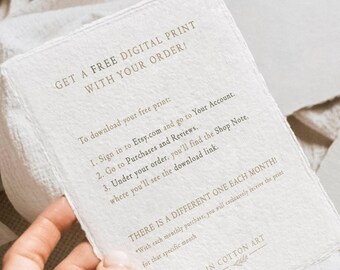 GET A FREE DIGITAL PRINT
WITH YOUR ORDER!
To download your free print:
1. Sign in to Etsy.com and go to Your Account.
2. Go to Purchases and Reviews.
3. Under your order, you'll find the Shop Note,
where you'll see the download link.
THERE IS A DIFFERENT ONE EACH MONTH!
*With each monthly purchase, you will exclusively receive the print
for that specific month.
COTTON ART